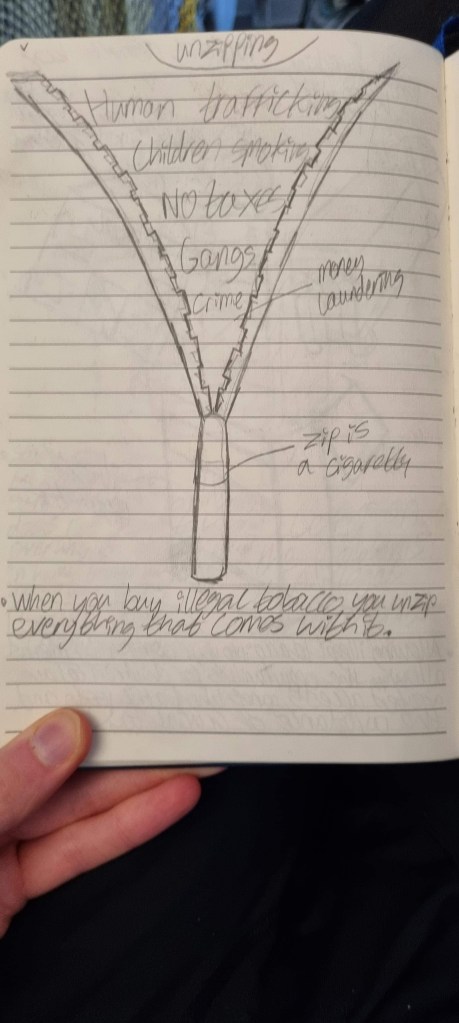 unzipping
Human trafficking
Children smoking
No taxes
Gangs
Crime
money
laundering
zip is
a cigarette
• When you buy illegal tobacco you unzip
everything that comes with it.